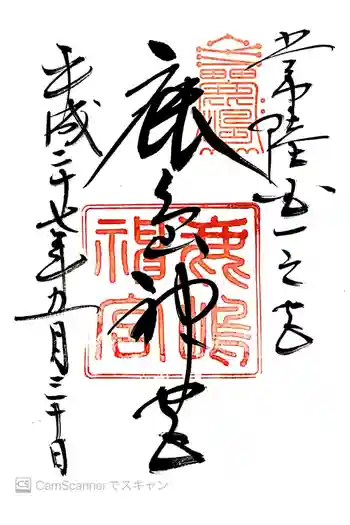 常陸国一之宮
鹿島神宮
鹿嶋神宮
平成二十七年五月三十日
CS CamScannerでスキャン